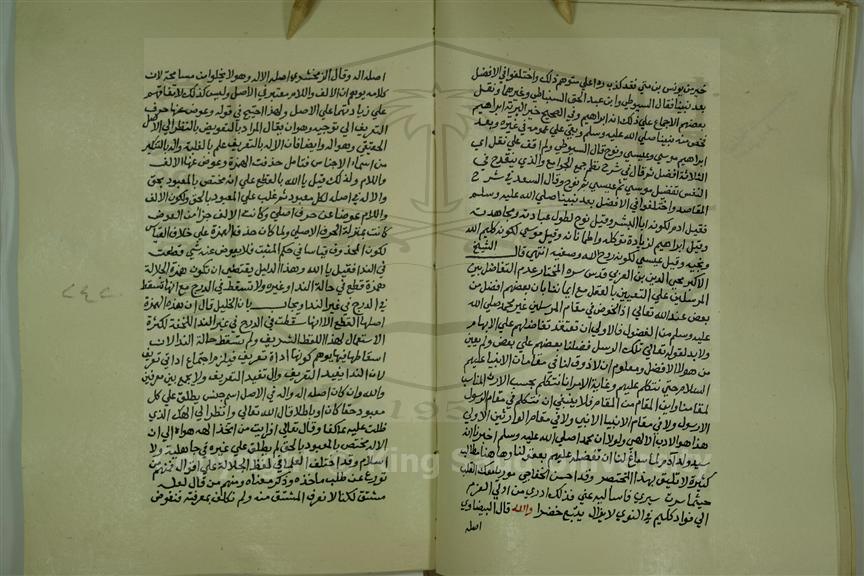 خير من يونس بن متى فقد كذب رد اعلى متوهم ذلك واختلفوا في الافضل
بعد نبينا فقال السيوطي وابن عبد الحق السنباطي وغيرهما ونقل
بعضهم الاجماع على ذلك انه ابراهيم وفي الصحيح خير البرية ابراهيم
نخص منه نبينا صلى الله عليه وسلم وبقي على عمومه في غيره وبعد
ابراهيم موسى وعيسى ونوح قال السيوطي ولم اقف على نقل اي
الثلاثة افضل ثم قال في شرح نظم جمع الجوامع والذي ينقدح في
النفس تفضيل موسى ثم عيسى ثم نوح وقال السعد في شرح
المقاصد واختلفوا في الافضل بعد نبينا صلى الله عليه وسلم
فقيل ادم لكونه ابا البشر وقيل نوح لطول عبادته ومجاهدته
وقيل ابراهيم لزيادة توكله واطمئنانه وقيل موسى لكونه كليم الله
ونجيه وقيل عيسى لكونه روح الله وصفيه انتهى قال الشيخ
الاكبر محي الدين بن العربي قدس سره المختار عدم التفاضل بين
المرسلين على التعيين بالعقل مع ايماننا بان بعضهم افضل من
بعض عند الله تعالى اذ الخوض في مقام المرسلين غير محمد صلى الله
عليه وسلم من الفضول فالاولى ان نعتقد تفاضلهم على الابهام
ولا بد لقوله تعالى تلك الرسل فضلنا بعضهم على بعض ولم يعين
من هو الافضل ومعلوم ان لا ذوق لنا في مقامات الانبيا عليهم
السلام حتى نتكلم عليهم وغاية الامر اننا نتكلم بحسب الارث المناسب
لمقامنا واين المقام من المقام فلا ينبغي ان يتكلم في مقام الرسول
الا رسول ولا في مقام الانبيا الا نبي ولا في مقام الوارثين الا ولي
هذا هو الادب الالهي ولولا ان محمدا صلى الله عليه وسلم اخبرنا انه
سيد ولد ادم لما ساغ لنا ان نفضله عليهم بعقولنا وههنا مطالب
كثيرة لا تليق بهذا المختصر وقد احسن الخفاجي
حيثما سرت سيري فاسأليه عني فذلك ادرى من اولي العزم
الى فواد كليم في النوى لا يزال يتبع خضرا والله قال البيضاوي
اصله
اصله اله وقال الزمخشري اصله الاله وهو لا يخلوا من مسامحة لان
كلامه يوهم ان الالف واللام معتبر في الاصل وليس كذلك لاتفاقهم
على زيادتهما على الاصل ولهذا احتيج في قوله وعوض عنها حرف
التعريف الى توجيه وهو ان يقال المراد بالتعويض بالنظر الى الاصل
الحقيقي وهو اله وايضا فان الاله بالتعريف علم بالغلبة واله بالتنكير
من اسماء الاجناس فتامل حذفت الهمزة وعوض عنها الالف
واللام ولذلك قيل يا الله بالقطع على انه مختص بالمعبود بحق
والاله في اصله لكل معبود ثم غلب على المعبود بالحق ولكون الالف
واللام عوضا عن حرف اصلي وكانت الالف جزأ من العوض
كانت بمنزلة الحرف الاصلي ولما كان حذف الهمزة على خلاف القياس
لكون المحذوف قياسا في حكم المثبت فلا يعوض عنه شي قطعت
في الندا فقيل يا الله وهذا الدليل يقتضي ان تكون همزة الجلالة
همزة قطع في حالة الندا وغيره ولا تسقط في الدرج مع انها تسقط
في الدرج في غير الندا ويجاب بان الخليل قال ان هذه الهمزة
اصلها القطع الا انها سقطت في الدرج في غير الندا للخفة لكثرة
الاستعمال لهذا اللفظ الشريف ولم تسقط حالة الندا لان
اسقاطها فيها يوهم كونها اداة تعريف فيلزم اجتماع اداتي تعريف
لان الندا يفيد التعريف وال تفيد التعريف ولا يجمع بين معرفين
والله وان كان اصله اله واله في الاصل اسم جنس يطلق على كل
معبود حقا كان او باطلا قال الله تعالى وانظر الى الهك الذي
ظلت عليه عاكفا وقال تعالى افرايت من اتخذ الهه هواه الى ان
الاله مختص بالمعبود بالحق لم يطلق على غيره في جاهلية ولا
اسلام وقد اختلف العلما في لفظ الجلالة على اقوال فمنهم من
تورع عن طلب مأخذه وذكر معناه ومنهم من قال لعله
مشتق لكنا لا نعرف المشتق منه ولم نكلف بمعرفته فنفوض